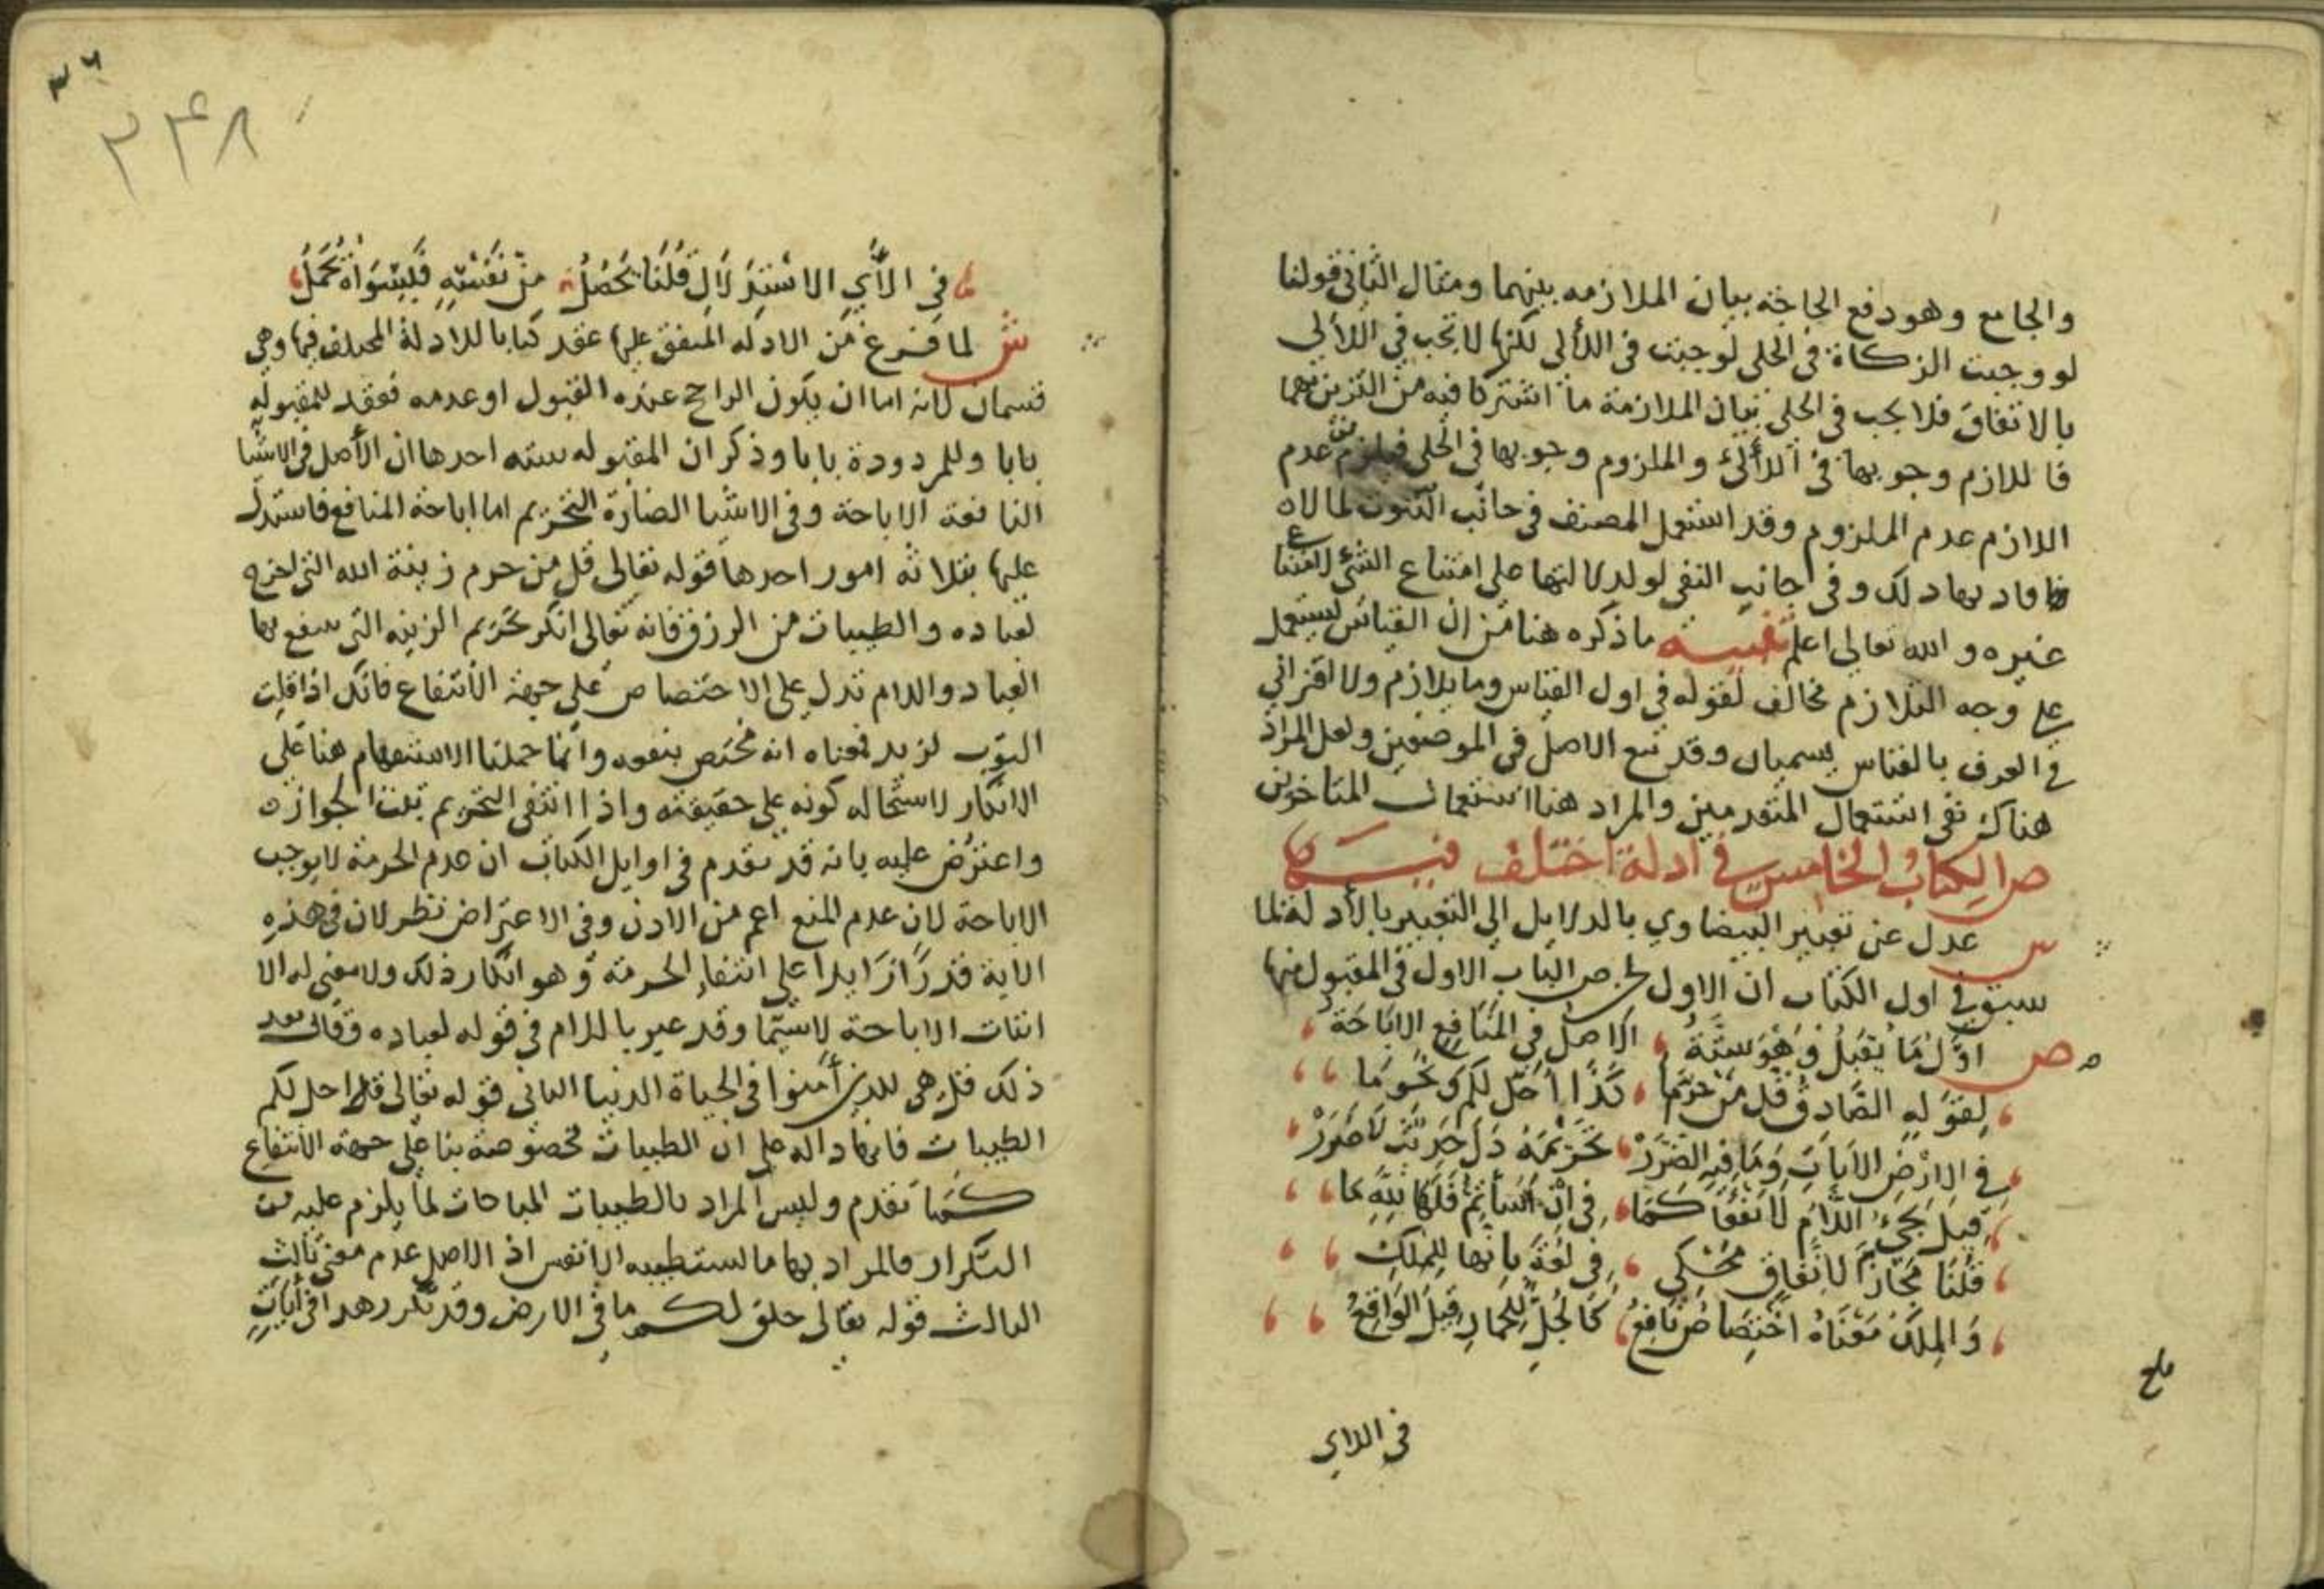 والجامع وهو دفع الحاجة بيان الملازمه بينهما ومثال الثاني قولنا
لو وجبت الزكاة في الحلي لوجبت في اللألي لكنها لا تجب في اللألي
بالاتفاق فلا يجب في الحلي بيان الملازمة ما اشتركا فيه من التزين بهما
فاللازم وجوبها في اللألئ والملزوم وجوبها في الحلي فيلزم من عدم
اللازم عدم الملزوم وقد استعمل المصنف في جانب الثبوت لما
فاد بها ذلك وفي جانب النفي لو لدلالتها على امتناع الشئ لامتناع
غيره والله تعالى اعلم تنبيه ما ذكره هنا من ان القياس يستعمل
على وجه التلازم مخالف لقوله في اول القياس وما بلازم ولا اقتراني
في العرف بالقياس يسميان وقد تبع الاصل في الموضعين ولعل المراد
هناك نفي استعمال المتقدمين والمراد هنا استعمال المتاخرين
ص الكتاب الخامس في ادلة اختلف فيها
ش عدل عن تعبير البيضاوي بالدلايل الي التعبير بالأدلة لما
سبق في اول الكتاب ان الاول لحن ص الباب الاول في المقبول منها
ص اول ما يقبل وهو ستة الاصل في المنافع الاباحة
لقوله الصادق قل من حرما كذا احل لكم ونحو ما
في الارض الايات وما فيه الضرر تحريمه دل حديث لا ضرر
قيل يجئ اللام لا نفعا كما في ان اسأتم فلها لله ما
قلنا مجاز لاتفاق محكي في لغة بانها للملك
والملك معناه اختصاص نافع كالجل للحمار قيل الواقع
في اللاي
٣٦
٢٤٨
في الأي الاستدلال قلنا يحصل من نفسه فليسواه تحمل
ش لما فرغ من الادله المتفق عليها عقد كتابا للادلة المختلف فيها وهي
قسمان لانه اما ان يكون الراجح عنده القبول او عدمه فعقد للمقبوله
بابا وللمردودة بابا وذكر ان المقبوله سته احدها ان الأصل في الاشيا
النافعة الاباحة وفي الاشيا الضارة التحريم اما اباحة المنافع فاستدل
عليها بثلاثه امور احدها قوله تعالى قل من حرم زينة الله التي اخرج
لعباده والطيبات من الرزق فانه تعالى انكر تحريم الزينه التي ينتفع بها
العباد واللام تدل على الاختصاص على جهة الانتفاع فانك اذا قلت
الثوب لزيد فمعناه انه مختص بنفعه وانما حملنا الاستفهام هنا على
الانكار لاستحاله كونه على حقيقته واذا انتفى التحريم ثبت الجواز
واعترض عليه بانه قد تقدم في اوايل الكتاب ان عدم الحرمة لا يوجب
الاباحة لان عدم المنع اعم من الاذن وفي الاعتراض نظر لان في هذه
الاية قدرا زايدا على انتفاء الحرمة وهو انكار ذلك ولا معنى له الا
اثبات الاباحة لاسيما وقد عبر باللام في قوله لعباده وقال بعد
ذلك قل هي للذين أمنوا في الحياة الدنيا الثاني قوله تعالى قل احل لكم
الطيبات فانها داله على ان الطيبات مخصوصة بنا على جهة الانتفاع
كما تقدم وليس المراد بالطيبات المباحات لما يلزم عليه من
التكرار فالمراد بها ما تستطيبه الانفس اذ الاصل عدم معنى ثالث
الثالث قوله تعالى خلق لكم ما في الارض وقد تكرر هذا في أيات